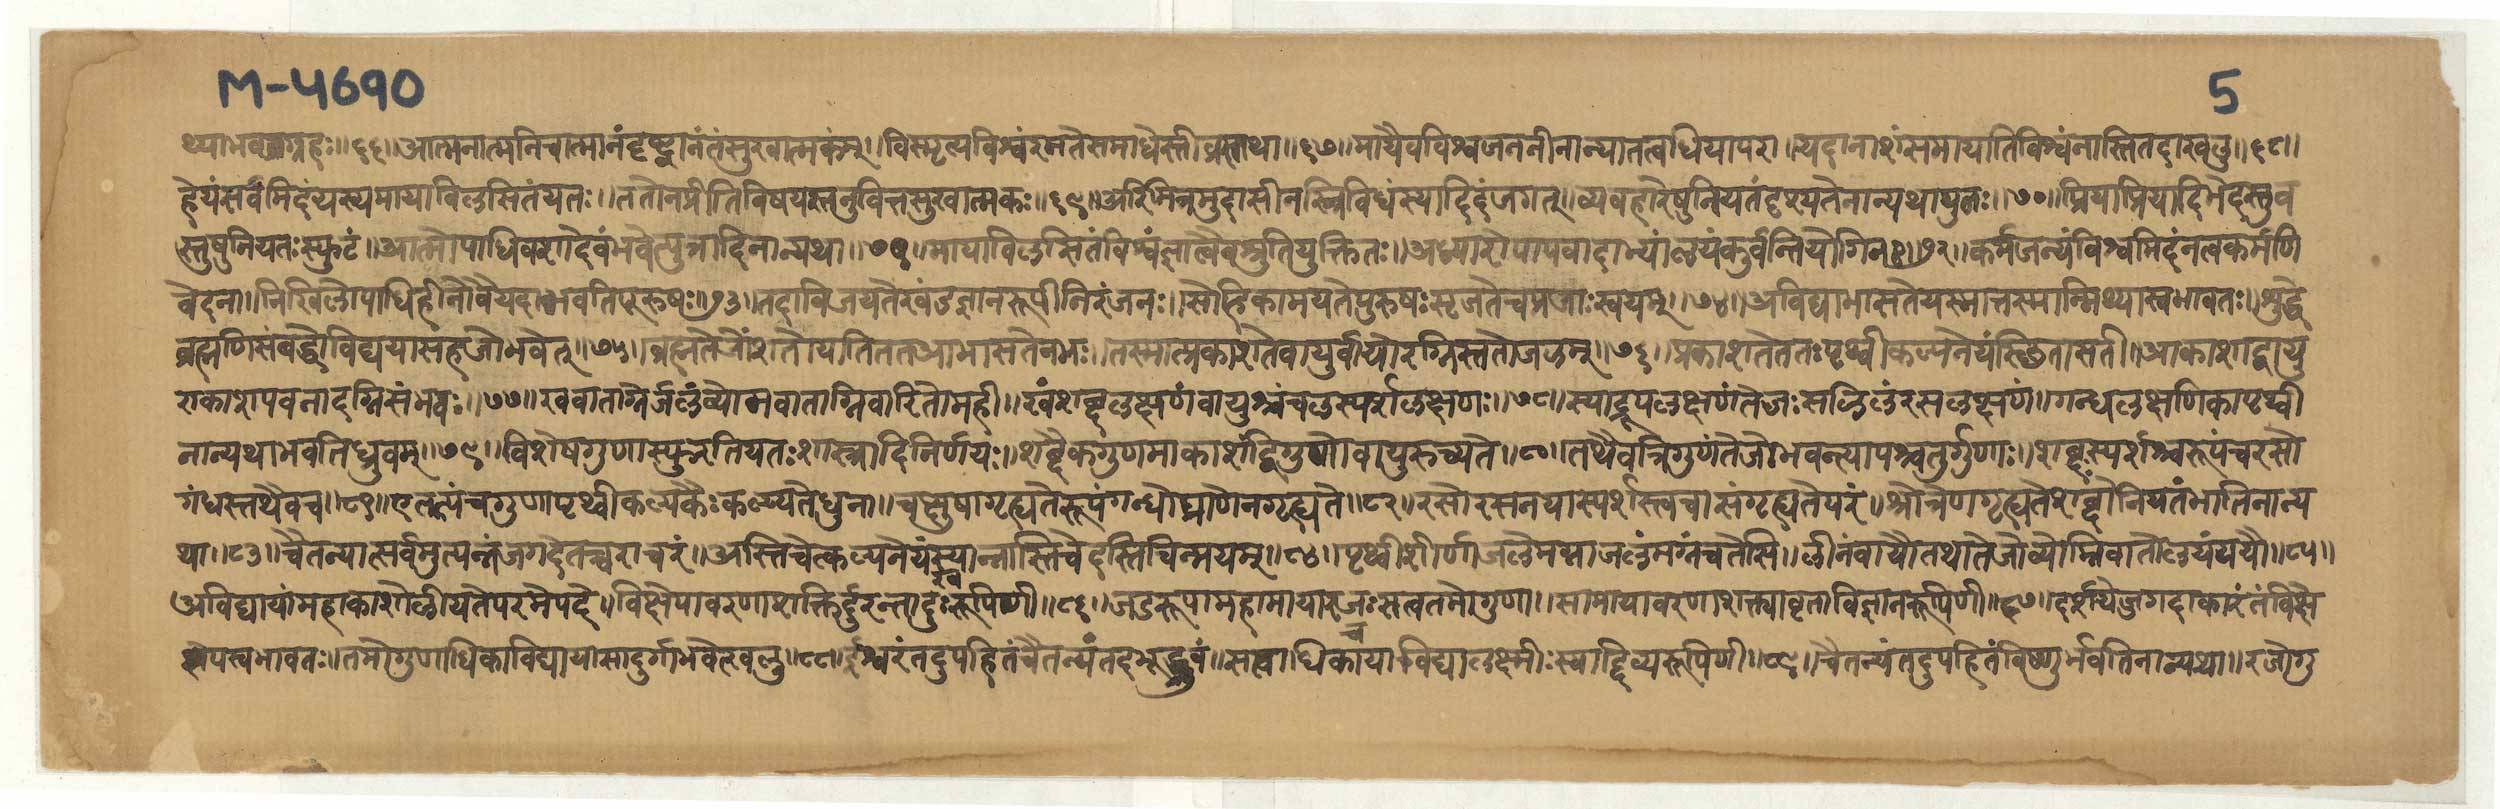 M-4690
5
थ्याभवग्रहः॥६६॥आत्मनात्मनिचात्मानंदृष्ट्वानंतंसुखात्मकंम्॥विस्मृत्यविश्वंरमतेसमाधेस्तीव्रतातथा॥६७॥मायैवविश्वजननीनान्यातत्वधियापरा॥यदानाशंसमायातिविश्वंनास्तितदाखलु॥६८॥
हेयंसर्वमिदंयस्यमायाविलसितंयतः॥ततोनप्रीतिविषयस्तनुवित्तसुखात्मकः॥६९॥अरिर्मित्रमुदासीनस्त्रिविधंस्यादिदंजगत्॥व्यवहारेषुनियतंदृश्यतेनान्यथायुतः॥७०॥प्रियाप्रियादिभेदस्तुव
स्तुषुनियतःस्फुटं॥आत्मोपाधिवशादेवंभवेत्पुत्रादिनान्यथा॥७१॥मायाविलसितंविश्वंज्ञात्वैवश्रुतियुक्तितः॥अध्यारोपापवादाभ्यांलयंकुर्वन्तियोगिनः॥७२॥कर्मजन्यंविश्वमिदंनत्वकर्मणि
वेदना॥निखिलोपाधिहीनोवैयदाभवतिपूरुषः॥७३॥तदाविजयतेखंडज्ञानरूपीनिरंजनः॥सोहिकामयतेपुरुषःसृजतेचप्रजाःस्वयम्॥७४॥अविद्याभासतेयस्मात्तस्मान्मिथ्यास्वभावतः॥शुद्धे
ब्रह्मणिसंबद्धोविद्ययासहजोभवेत्॥७५॥ब्रह्मतेजोंशतोयातिततआभासतेनभः॥तस्मात्प्रकाशतेवायुर्वायोरग्निस्ततोजलम्॥७६॥प्रकाशतेततःपृथ्वीकल्पनेयंस्थितासती॥आकाशाद्वायु
राकाशपवनादग्निसंभवः॥७७॥खवाताग्नेर्जलंव्योमवाताग्निवारितोमही॥खंशब्दलक्षणंवायुश्चंचलस्पर्शलक्षणः॥७८॥स्याद्रूपलक्षणंतेजःसलिलंरसलक्षणं॥गन्धलक्षणिकापृथ्वी
नान्यथाभवतिध्रुवम्॥७९॥विशेषगुणास्फुरतियतःशास्त्रादिनिर्णयः॥शब्दैकगुणमाकाशंद्विगुणोवायुरुच्यते॥८०॥तथैवत्रिगुणंतेजोभवन्त्यापश्चतुर्गुणाः॥शब्दस्पर्शश्चरूपंचरसो
गंधस्तथैवच॥८१॥एतत्पंचगुणापृथ्वीकल्पकैःकल्प्यतेधुना॥चक्षुषागृह्यतेरूपंगन्धोघ्राणेनगृह्यते॥८२॥रसोरसनयास्पर्शस्त्वचासंगृह्यतेपरं॥श्रोत्रेणगृह्यतेशब्दोनियतंभातिनान्य
था॥८३॥चैतन्यात्सर्वमुत्पन्नंजगदेतच्चराचरं॥अस्तिचेत्कल्पनेयंस्यान्नास्तिचेदस्तिचिन्मयम्॥८४॥पृथ्वीशीर्णाजलेमग्नाजलंमग्नंचतेजसि॥लीनंवायौतथातेजोव्योम्निवातोलयंययौ॥८५॥
अविद्यायांमहाकाशोलीयतेपरमेपदे॥विक्षेपावरणाशक्तिर्दुरन्तादुःखरूपिणी॥८६॥जडरूपामहामायारजःसत्वतमोगुणा॥सामायावरणाशक्त्यावृताविज्ञानरूपिणी॥८७॥दर्शयेज्जगदाकारंतंविक्षे
पस्वभावतः॥तमोगुणाधिकाविद्यायासादुर्गाभवेत्खलु॥८८॥ईश्वरंतदुपहितंचैतन्यंतदभूद्ध्रुवं॥सत्वाधिकाचयाविद्यालक्ष्मीःस्याद्दिव्यरूपिणी॥८९॥चैतन्यंतदुपहितंविष्णुर्भवतिनान्यथा॥रजोगु